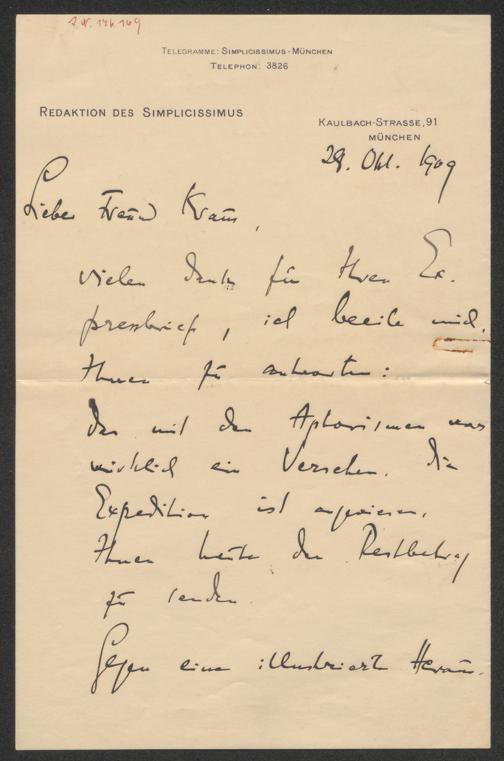 TELEGRAMME: SIMPLICISSIMUS-MÜNCHEN
TELEPHON: 3826
REDAKTION DES SIMPLICISSIMUS
KAULBACH-STRASSE, 91
MÜNCHEN
28. Okt. 1909
Lieber Freund Kraus,
vielen Dank für Ihren Ex-
pressbrief, ich beeile mich,
Ihnen zu antworten:
Das mit den Aphorismen war
wirklich ein Versehen. Die
Expedition ist angewiesen,
Ihnen heute den Restbetrag
zu senden.
Gegen eine illustrierte Heraus-